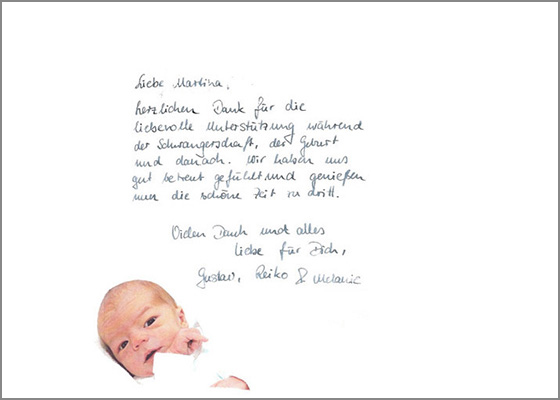 Liebe Martina,
herzlichen Dank für die
liebevolle Unterstützung während
der Schwangerschaft, der Geburt
und danach. Wir haben uns
gut betreut gefühlt und genießen
nun die schöne Zeit zu dritt.
Vielen Dank und alles
Liebe für Dich,
Gustav, Reiko & Melanie